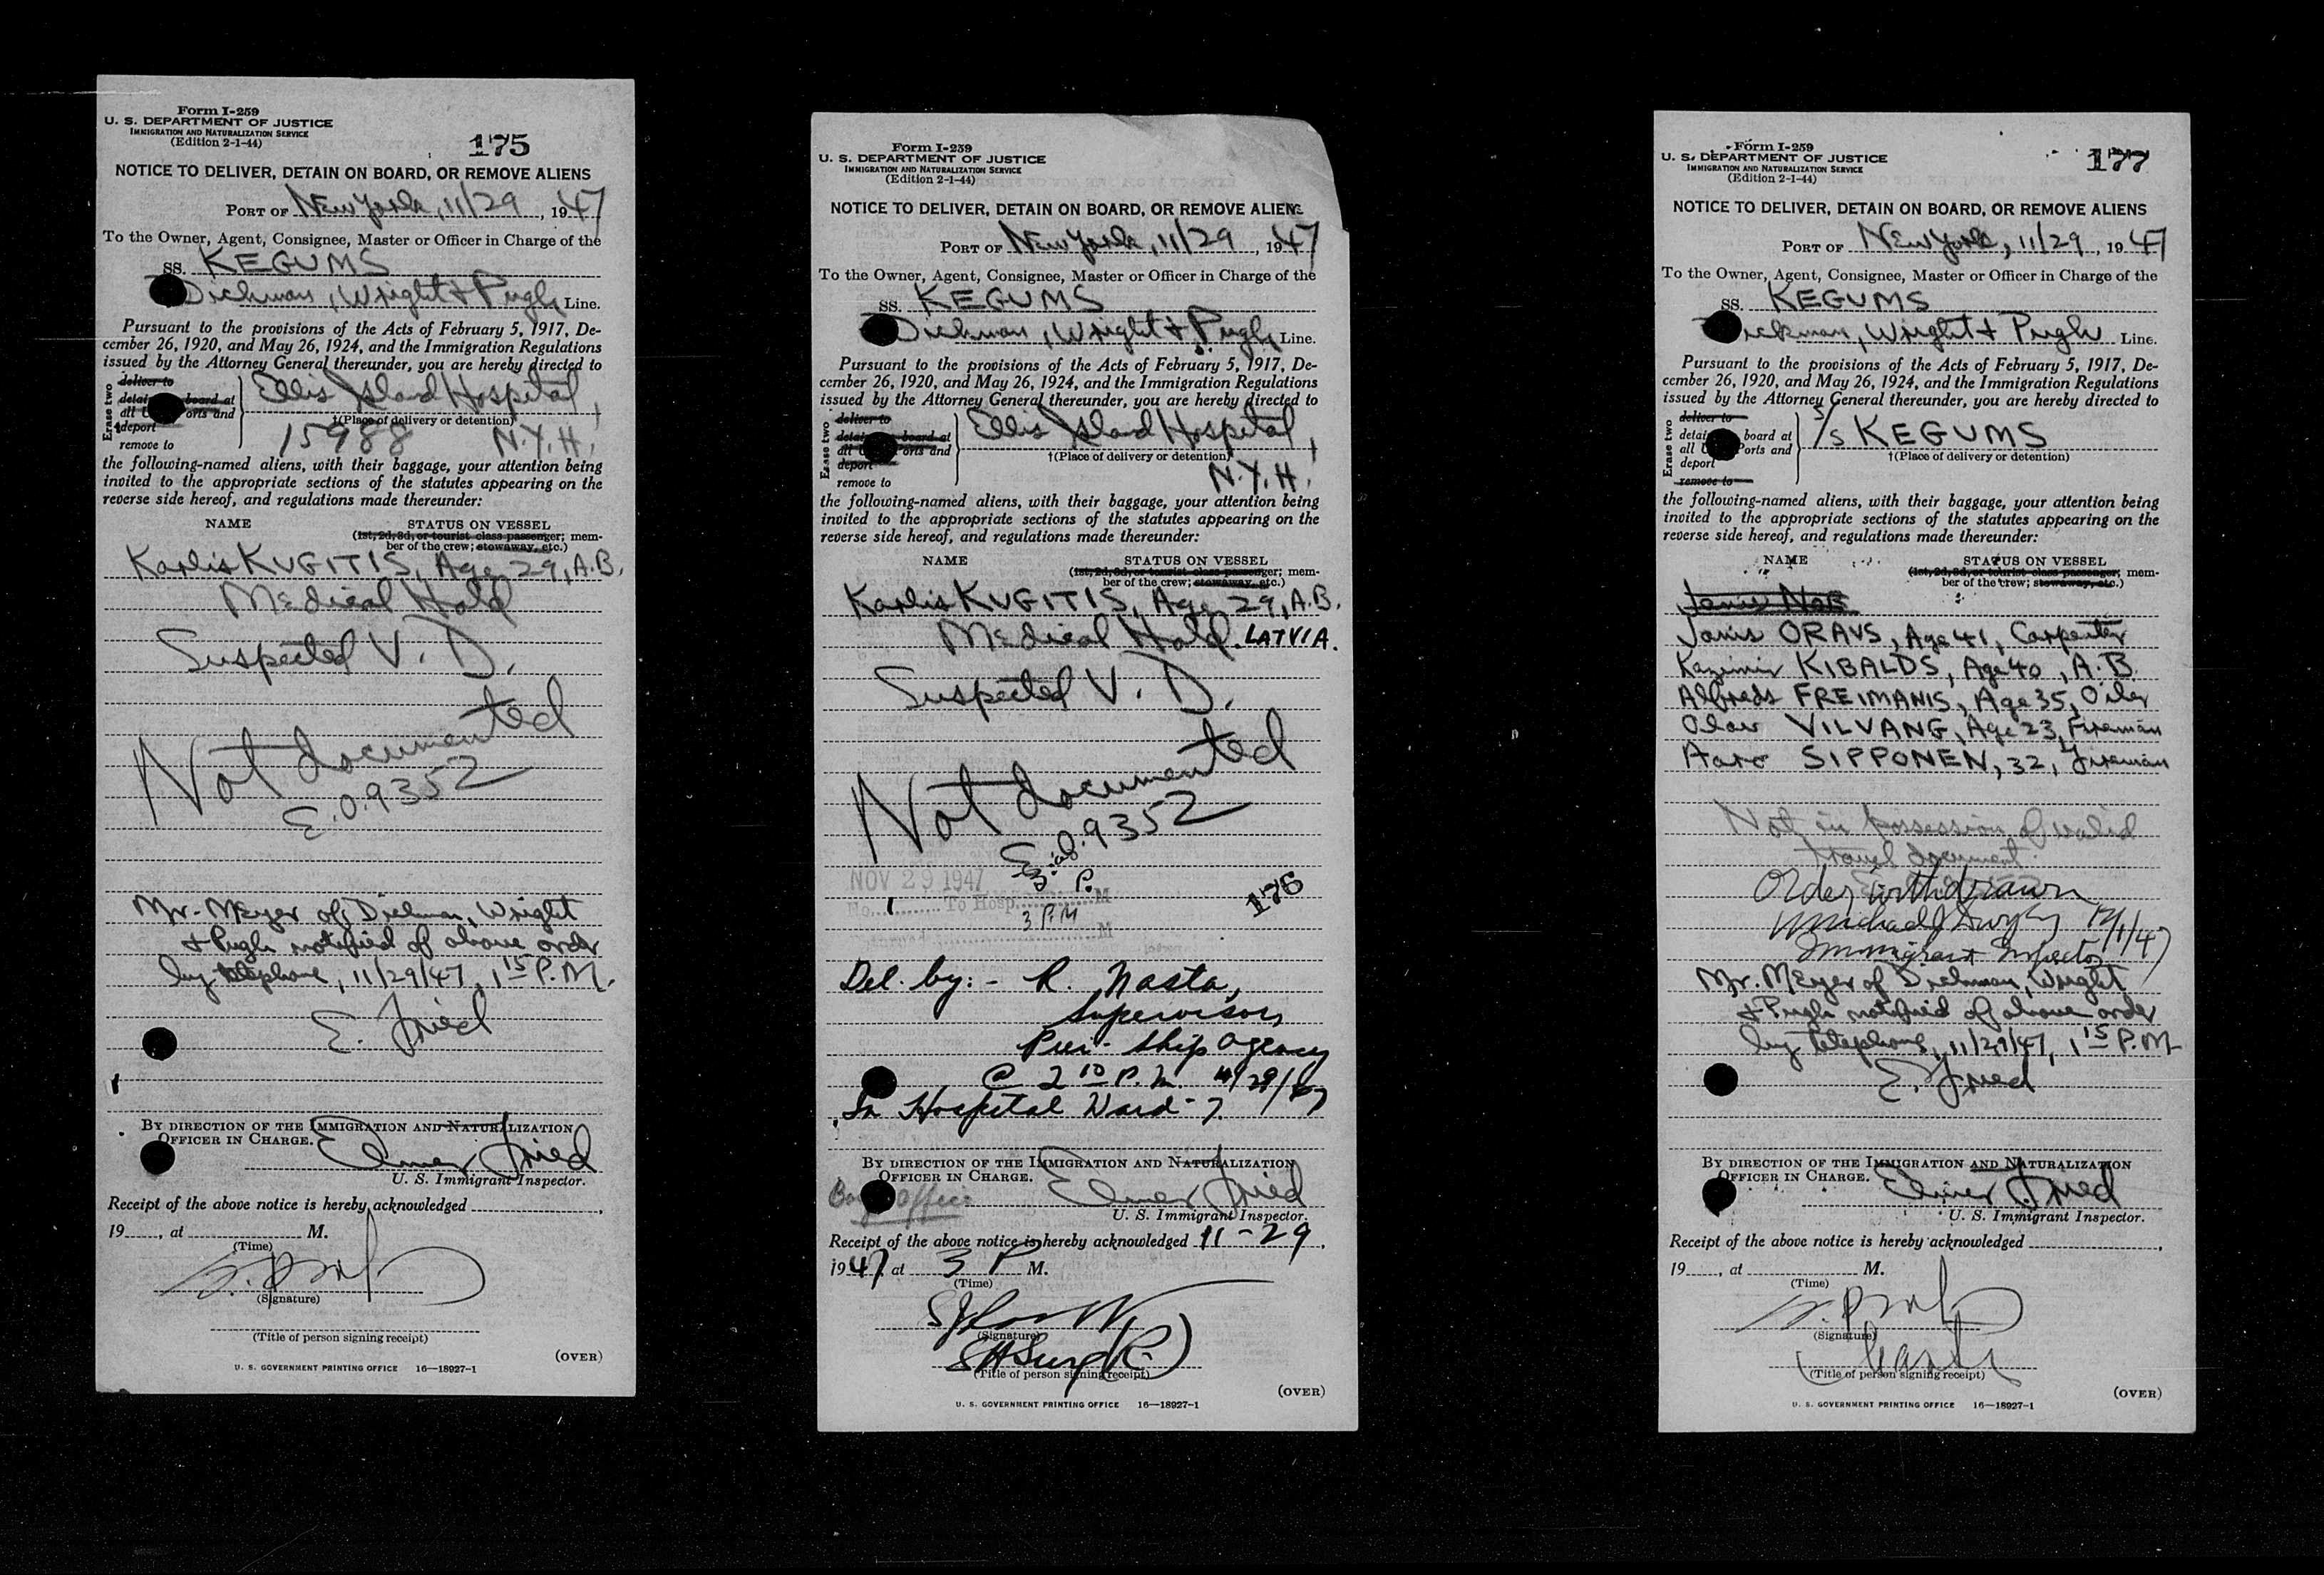 Form I-259
U. S. DEPARTMENT OF JUSTICE
IMMIGRATION AND NATURALIZATION SERVICE
(Edition 2-1-44)
175
NOTICE TO DELIVER, DETAIN ON BOARD, OR REMOVE ALIENS
PORT OF New York, 11/29, 1947
To the Owner, Agent, Consignee, Master or Officer in Charge of the
SS. KEGUMS
Dichman, Wright & Pugh Line.
Pursuant to the provisions of the Acts of February 5, 1917, De-
cember 26, 1920, and May 26, 1924, and the Immigration Regulations
issued by the Attorney General thereunder, you are hereby directed to
Erase two
deliver to
board at
all orts and
deport
remove to
Ellis Island Hospital,
†(Place of delivery or detention)
15988 N.Y.H.
the following-named aliens, with their baggage, your attention being
invited to the appropriate sections of the statutes appearing on the
reverse side hereof, and regulations made thereunder:
NAME STATUS ON VESSEL
(1st, 2d, 3d, or tourist class passenger; mem-
ber of the crew; stowaway, etc.)
Karlis KUGITIS, Age 29, A.B.
Medical Hold
Suspected V. D.
Not documented
E.O. 9352
Mr. Meyer of Dichman, Wright
& Pugh notified of above order
by telephone, 11/29/47, 1 15 P.M.
E. Fried
BY DIRECTION OF THE IMMIGRATION AND NATURALIZATION
OFFICER IN CHARGE.
Elmer Fried
U. S. Immigrant Inspector.
Receipt of the above notice is hereby acknowledged
19 , at M.
(Time)
(Signature)
(Title of person signing receipt)
(OVER)
U. S. GOVERNMENT PRINTING OFFICE 16—18927-1
Form I-259
U. S. DEPARTMENT OF JUSTICE
IMMIGRATION AND NATURALIZATION SERVICE
(Edition 2-1-44)
NOTICE TO DELIVER, DETAIN ON BOARD, OR REMOVE ALIENS
PORT OF New York, 11/29, 1947
To the Owner, Agent, Consignee, Master or Officer in Charge of the
SS. KEGUMS
Dichman, Wright & Pugh Line.
Pursuant to the provisions of the Acts of February 5, 1917, De-
cember 26, 1920, and May 26, 1924, and the Immigration Regulations
issued by the Attorney General thereunder, you are hereby directed to
Erase two
deliver to
board at
all orts and
deport
remove to
Ellis Island Hospital,
†(Place of delivery or detention)
N.Y.H.
the following-named aliens, with their baggage, your attention being
invited to the appropriate sections of the statutes appearing on the
reverse side hereof, and regulations made thereunder:
NAME STATUS ON VESSEL
(1st, 2d, 3d, or tourist class passenger; mem-
ber of the crew; stowaway, etc.)
Karlis KUGITIS, Age 29, A.B.
Medical Hold. LATVIA.
Suspected V. D.
Not documented
E.O. 9352
NOV 29 1947
No. 1 To Hosp. M
3 P.M
176
Del. by:- R. Nasta,
Supervisor,
Pier-Ship Agency
@ 2 10 P.M. 11/29/47
In Hospital Ward-7.
BY DIRECTION OF THE IMMIGRATION AND NATURALIZATION
OFFICER IN CHARGE.
Elmer Fried
Office
U. S. Immigrant Inspector.
Receipt of the above notice is hereby acknowledged 11-29,
1947, at 3 P M.
(Time)
(Signature)
(Title of person signing receipt)
(OVER)
U. S. GOVERNMENT PRINTING OFFICE 16—18927-1
Form I-259
U. S. DEPARTMENT OF JUSTICE
IMMIGRATION AND NATURALIZATION SERVICE
(Edition 2-1-44)
177
NOTICE TO DELIVER, DETAIN ON BOARD, OR REMOVE ALIENS
PORT OF New York, 11/29, 1947
To the Owner, Agent, Consignee, Master or Officer in Charge of the
SS. KEGUMS
Dichman, Wright & Pugh Line.
Pursuant to the provisions of the Acts of February 5, 1917, De-
cember 26, 1920, and May 26, 1924, and the Immigration Regulations
issued by the Attorney General thereunder, you are hereby directed to
Erase two
deliver to
board at
all Ports and
deport
remove to
S/S KEGUMS
†(Place of delivery or detention)
the following-named aliens, with their baggage, your attention being
invited to the appropriate sections of the statutes appearing on the
reverse side hereof, and regulations made thereunder:
NAME STATUS ON VESSEL
(1st, 2d, 3d, or tourist class passenger; mem-
ber of the crew; stowaway, etc.)
Janis ORAVS, Age 41, Carpenter
Kazimir KIBALDS, Age 40, A.B
Alfreds FREIMANIS, Age 35, Oiler
Olav VILVANG, Age 23, Fireman
Aaro SIPPONEN, 32, Fireman
Not in possession of valid
travel document.
Order withdrawn
12/1/47
Immigrant Inspector
Mr. Meyer of Dichman, Wright
& Pugh notified of above order
by telephone, 11/29/47, 1 15 P.M.
E. Fried
BY DIRECTION OF THE IMMIGRATION AND NATURALIZATION
OFFICER IN CHARGE.
Elmer Fried
U. S. Immigrant Inspector.
Receipt of the above notice is hereby acknowledged
19 , at M.
(Time)
(Signature)
(Title of person signing receipt)
(OVER)
U. S. GOVERNMENT PRINTING OFFICE 16—18927-1